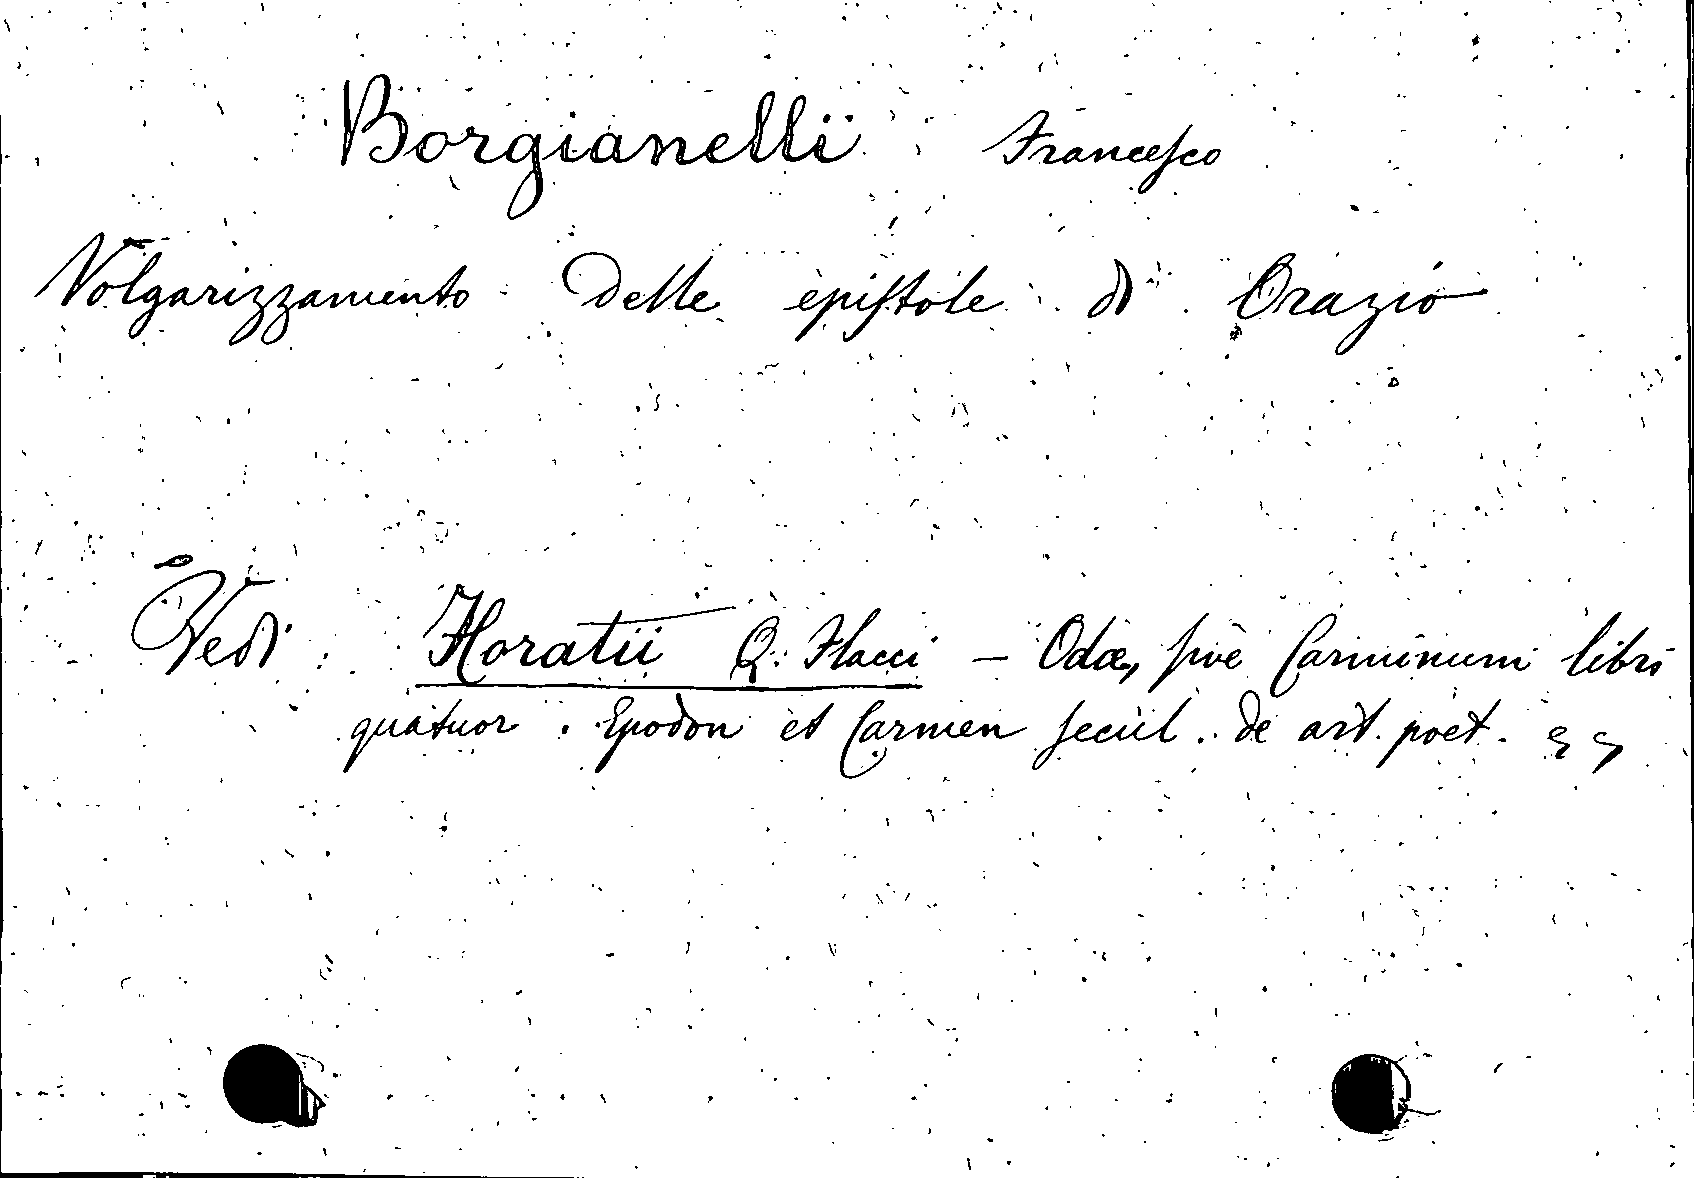 Borgianelli Francesco
Volgarizzamento delle epistole di Orazio
Vedi Horatii Q. Flacci – Odæ, sive Carminum libri
quatuor. Epodon et Carmen secul. de art. poet.